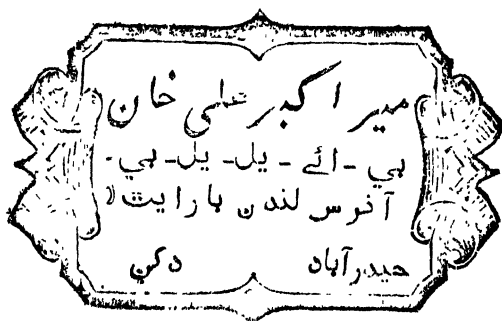 میر اکبر علی خان
بي - ائے - يل - يل - بي -
آنرس لندن بارايٹ (
حیدرآباد دکن